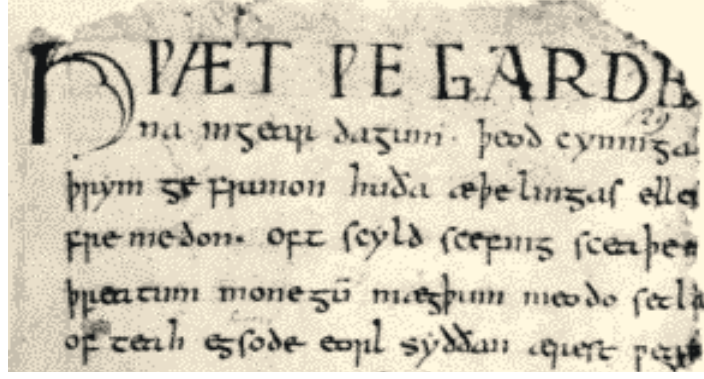 HǷÆT ǷE GARDE
29
na ingear dagum. þeod cyninga
þrym ge frunon huða æþelingaſ elle
fremedon. oft ſcyld ſcefing ſceaþe
þreatum monegū mægþum meodo ſetla
of teah egſode eorl syððan æreſt ƿear